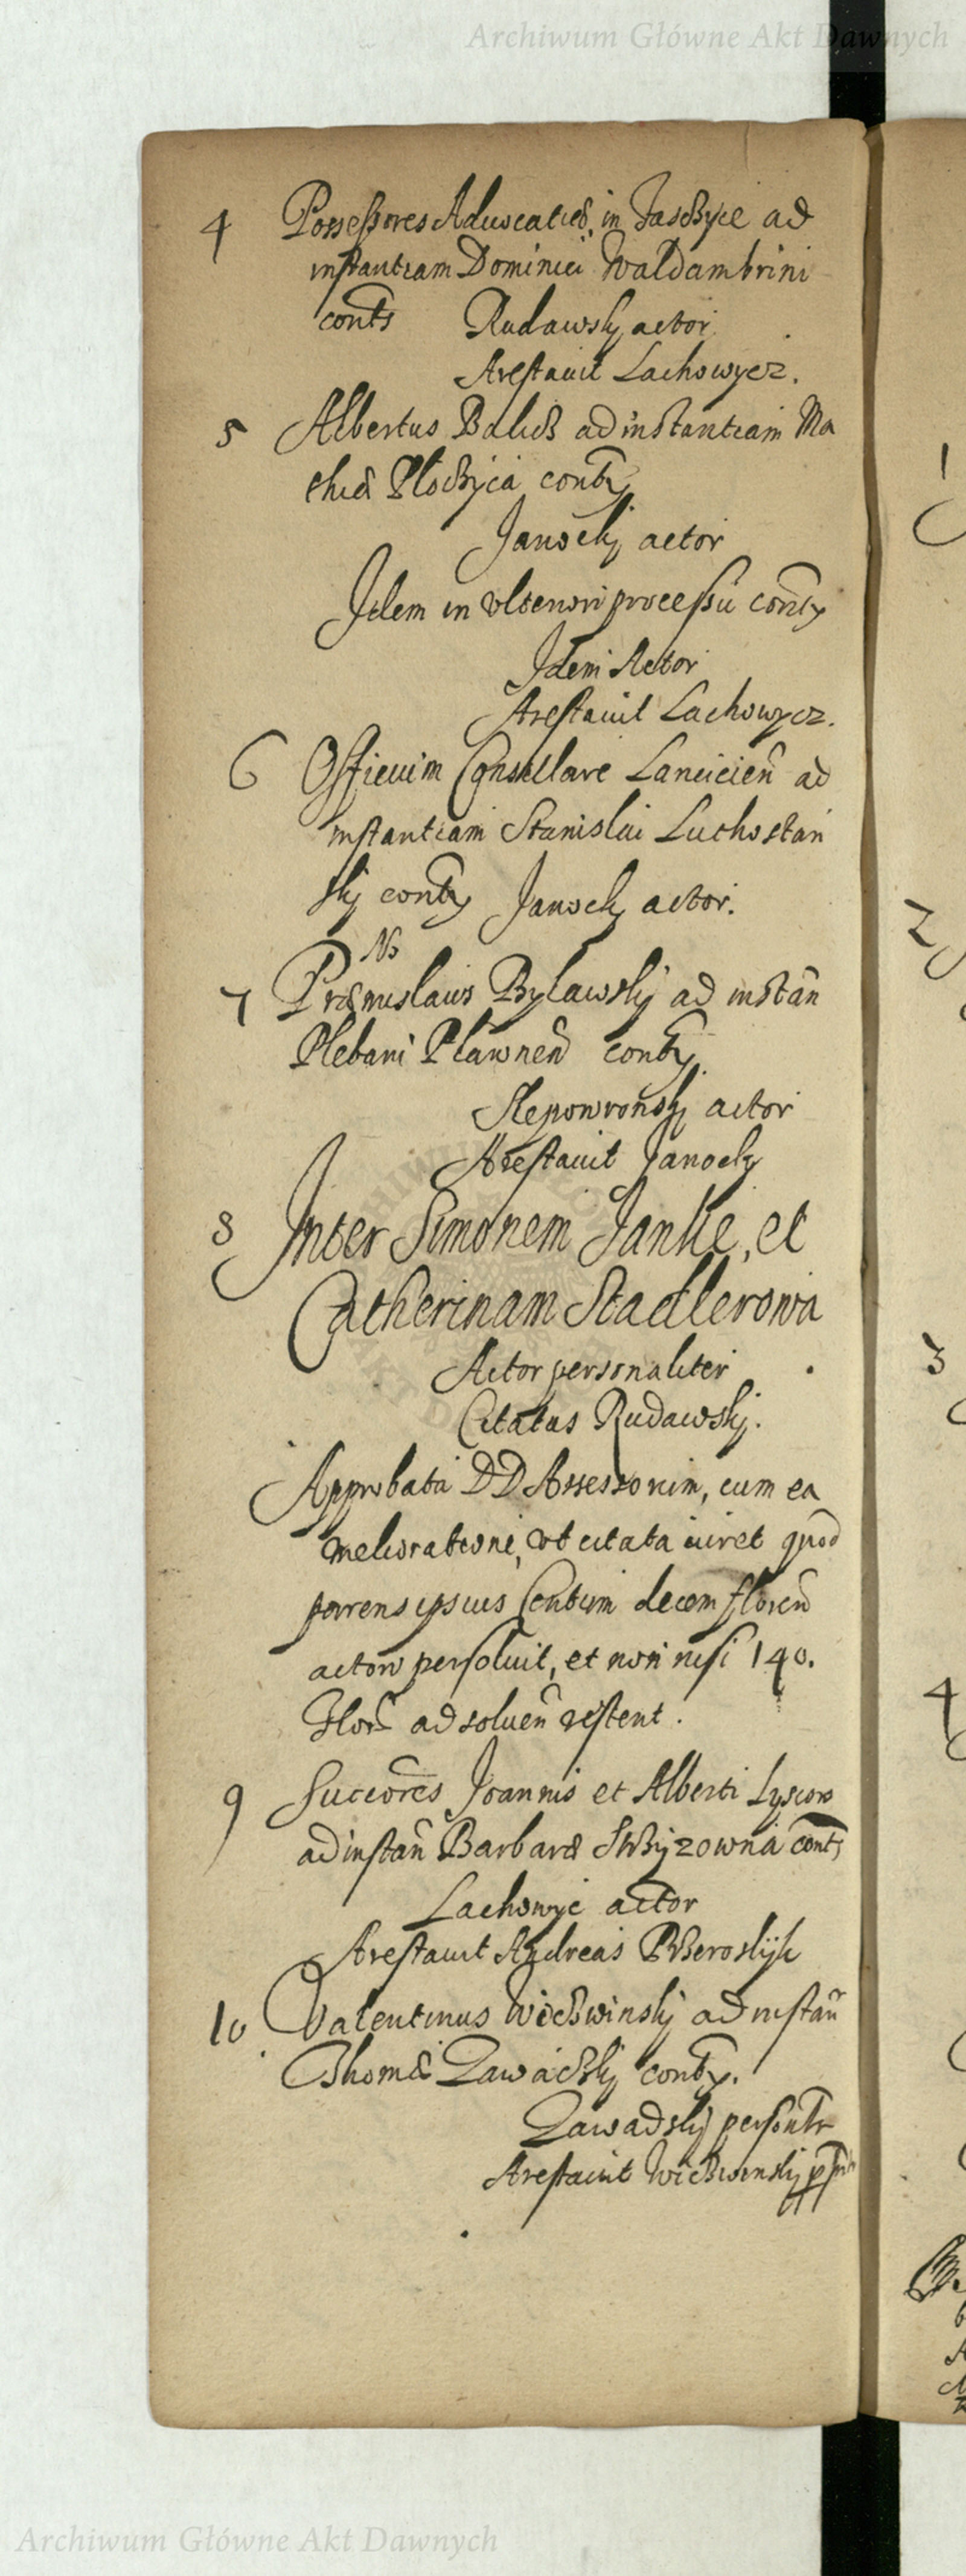 Archiwum Główne Akt Dawnych
4 Possessores Aduocatiæ in ad
instantiam Dominici Waldambrini
conts Rudawskj actor
Arestauit Lachowycz.
5 Albertus Balicz ad instantiam Ma
thiæ conts
Janockj actor
Idem in vlteriori processu conts
Idem Actor
Arestauit Lachowycz.
6 Officium Consulare Lancicien ad
instantiam Stanislai Luthostan
skj conts Janockj actor.
No
7 Præmislaus Bylawskj ad instan
Plebani Plawnen conts
Slepowronskj actor
Arestauit Janockj
8 Inter Simonem Janke, et
Catherinam Stadlerowa
Actor personaliter
Citatus Rudawskj.
Approbata DD Assessorum, cum ea
melioratione, vt citata iuret quod
parens ipsius Centum decem floren
actori persoluit, et non nisi 140.
Flor ad soluen restent.
9 Succores Joannis et Alberti
ad instan Barbaræ conts
Lachowyc actor
Arestauit Andreas
10 Valentinus ad instan
Thomæ Zawadskj conts.
Zawadskj personlr
Arestauit
1
2
3
4
Archiwum Główne Akt Dawnych